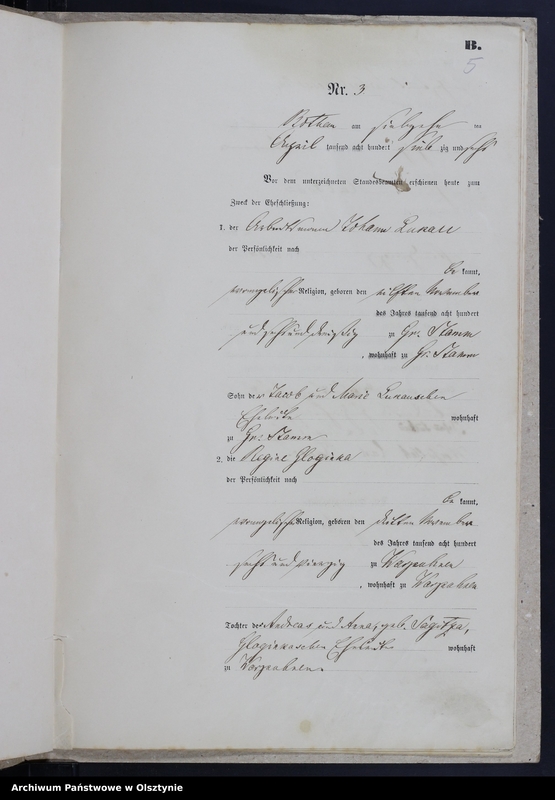 B.
5
Nr. 3
am siebzehn ten
April tausend acht hundert sieb zig und sechs
Vor dem unterzeichneten Standesbeamten erschienen heute zum
Zweck der Eheschließung:
1. der Arbeitsmann Johann
der Persönlichkeit nach
be kannt,
evangelischer Religion, geboren den elften November
des Jahres tausend acht hundert
zu Gr: Stamm
, wohnhaft zu Gr: Stamm
Sohn der Jacob und Marie
Eheleute wohnhaft
zu Gr: Stamm
2. die Regine
der Persönlichkeit nach
be kannt,
evangelischer Religion, geboren den dritten November
des Jahres tausend acht hundert
sechs und vierzig zu
, wohnhaft zu
Tochter der Andreas und Anna, geb.
Eheleute wohnhaft
zu
Archiwum Państwowe w Olsztynie